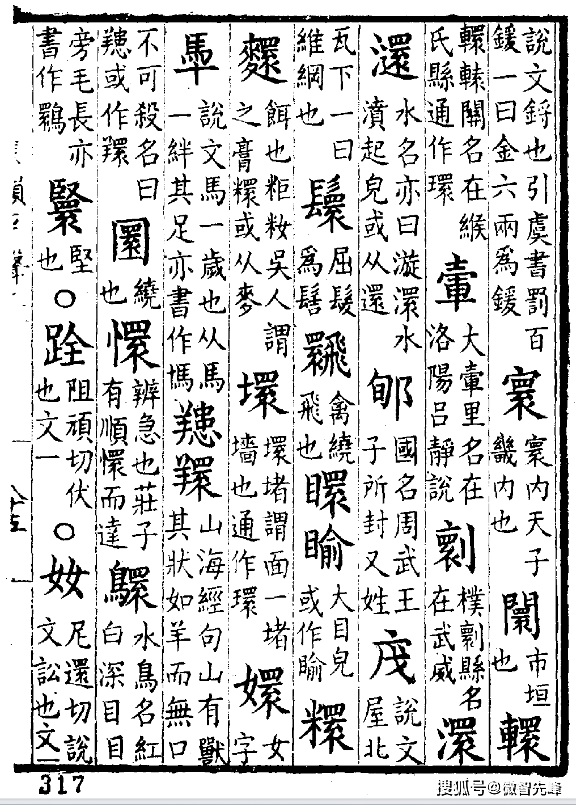 說文鋝也引虞書罰百鍰一曰金六兩爲鍰 寰 寰内天子畿内也 闤 市垣也 轘
轘轅關名在緱氏縣通作環 大里名在洛陽吕靜說 樸縣名在武威 澴
水名亦曰漩澴水濆起皃或从還 郇 國名周武王子所封又姓 說文屋北
瓦下一曰維綱也 鬟 屈髮爲髻 禽繞飛也 大目皃或作 糫
餌也粔籹吳人謂之膏糫或从麥 環堵謂面一堵墻也通作環 嬛 女字
說文馬一歲也从馬一絆其足亦書作 山海經句山有獸其狀如羊而無口
不可殺名曰或作 圜 繞也 懁 辨急也莊子有順懁而達 水鳥名紅白深目目
旁毛長亦書作 堅也 ○ 跧 阻頑切伏也文一 ○ 奻 尼還切說文訟也文一
317
搜狐号@微智先峰